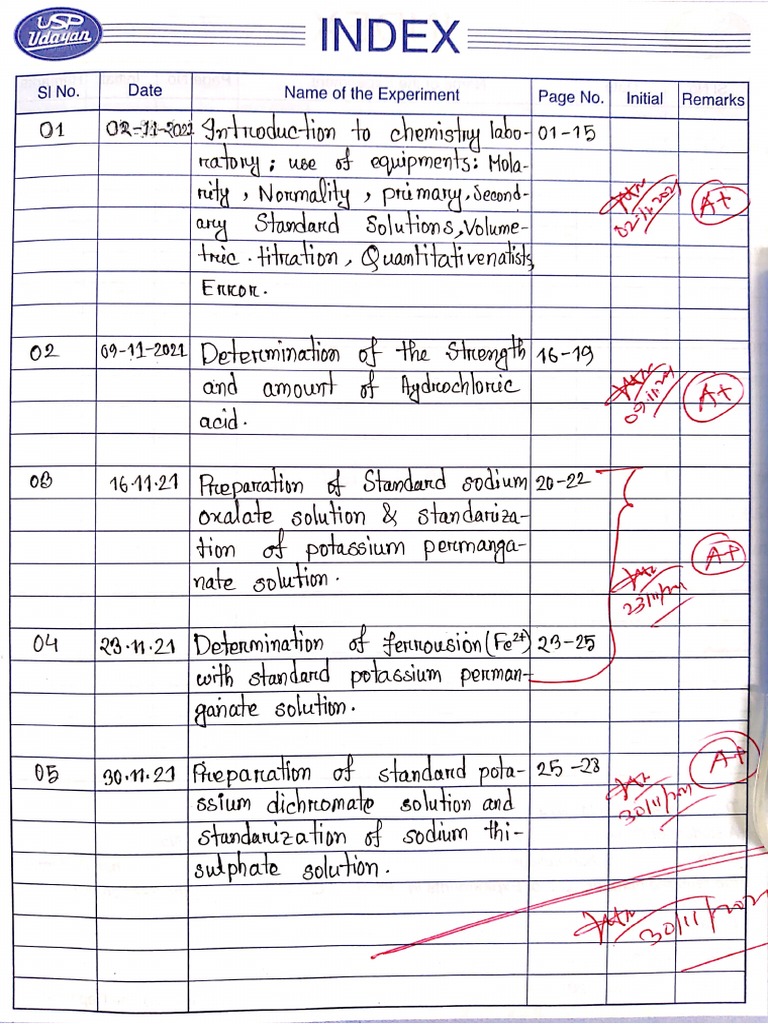 USP
Udayan
INDEX
Sl No. Date Name of the Experiment Page No. Initial Remarks
01 02-11-2021 Introduction to chemistry labo- 01-15
ratory; use of equipments: Mola-
rity, Normality, primary, Second-
ary Standard Solutions, Volume-
tric titration, Quantitativenalists,
Error.
02-11-2021 A+
02 09-11-2021 Determination of the Strength 16-19
and amount of Hydrochloric
acid.
09.11.21 A+
03 16.11.21 Preparation of Standard sodium 20-22
oxalate solution & standariza-
tion of potassium permanga-
nate solution.
23/11/2021 A+
04 23.11.21 Determination of ferrousion (Fe²⁺) 23-25
with standard potassium perman-
ganate solution.
05 30.11.21 Preparation of standard pota- 25-28
ssium dichromate solution and
standarization of sodium thi-
sulphate solution.
30/11/2021 A+
30/11/2021